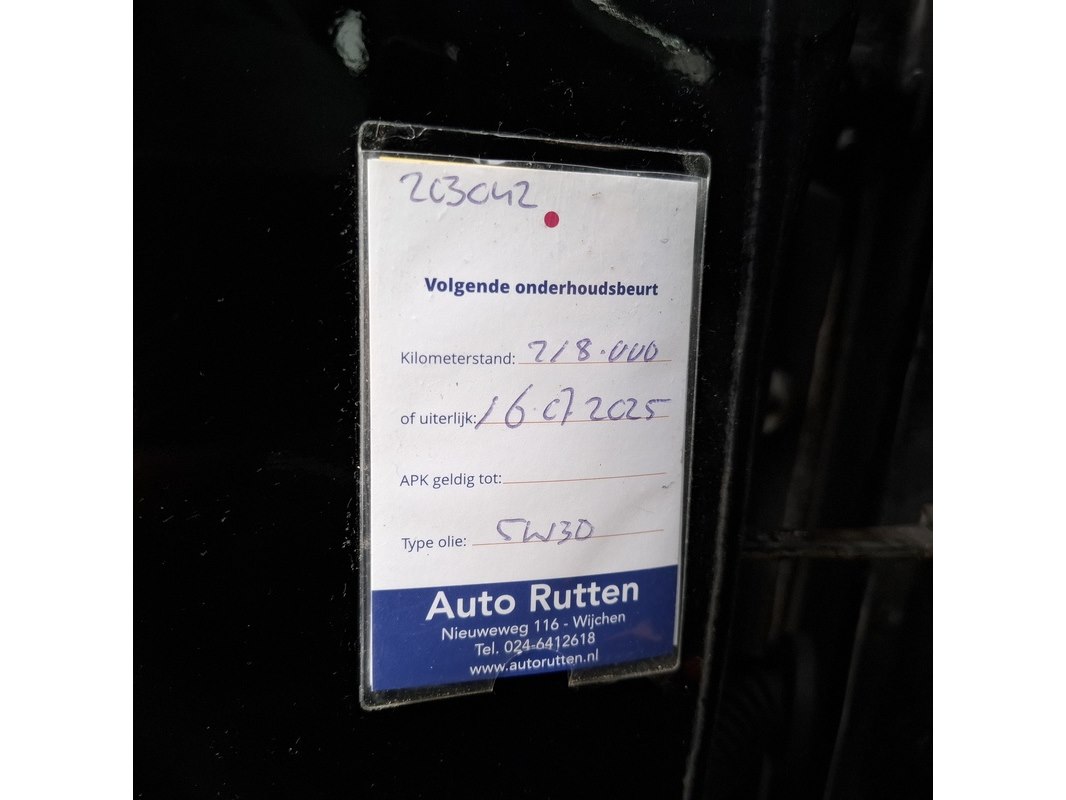 203042
Volgende onderhoudsbeurt
Kilometerstand: 218.000
of uiterlijk: 16.07 2025
APK geldig tot:
Type olie: 5W30
Auto Rutten
Nieuweweg 116 - Wijchen
Tel. 024-6412618
www.autorutten.nl